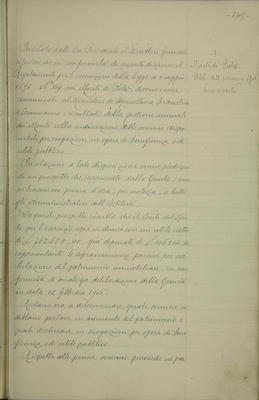 - 145 -
1.
Monte di Pietà
Utili dell'esercizio 1904
Invitato dall'On. Presidente il Direttore Generale
riferisce che in conformità di quanto dispone il
Regolamento per l'esecuzione della legge 4 maggio
1898 N° 169 sui Monti di Pietà, devono essere
comunicati al Ministero di Agricoltura Industria
e Commercio i risultati della gestione annuale
dei Monti colla indicazione delle somme dispo-
nibili per erogazioni in opere di beneficenza e di
utilità pubblica.
In relazione a tale disposizione
un prospetto che (approvato dalla Giunta)
prima d'ora, per notizia, a tutti
gli Amministratori dell'Istituto.
Da questi prospetti risulta che il Conto del Mon-
te per l'esercizio 1904 si chiuse con un utile netto
di
rappresentante le sopravvenienze passive per sva-
lutazione del patrimonio immobiliare, in con-
formità di analoga deliberazione della Giunta
in data 12 febbraio 1905.
Restano ora a determinare quali somme si
debbano portare in aumento del patrimonio e
quali destinare in erogazioni per opere di bene-
ficenza, e di utilità pubblica.
Rispetto alle prime